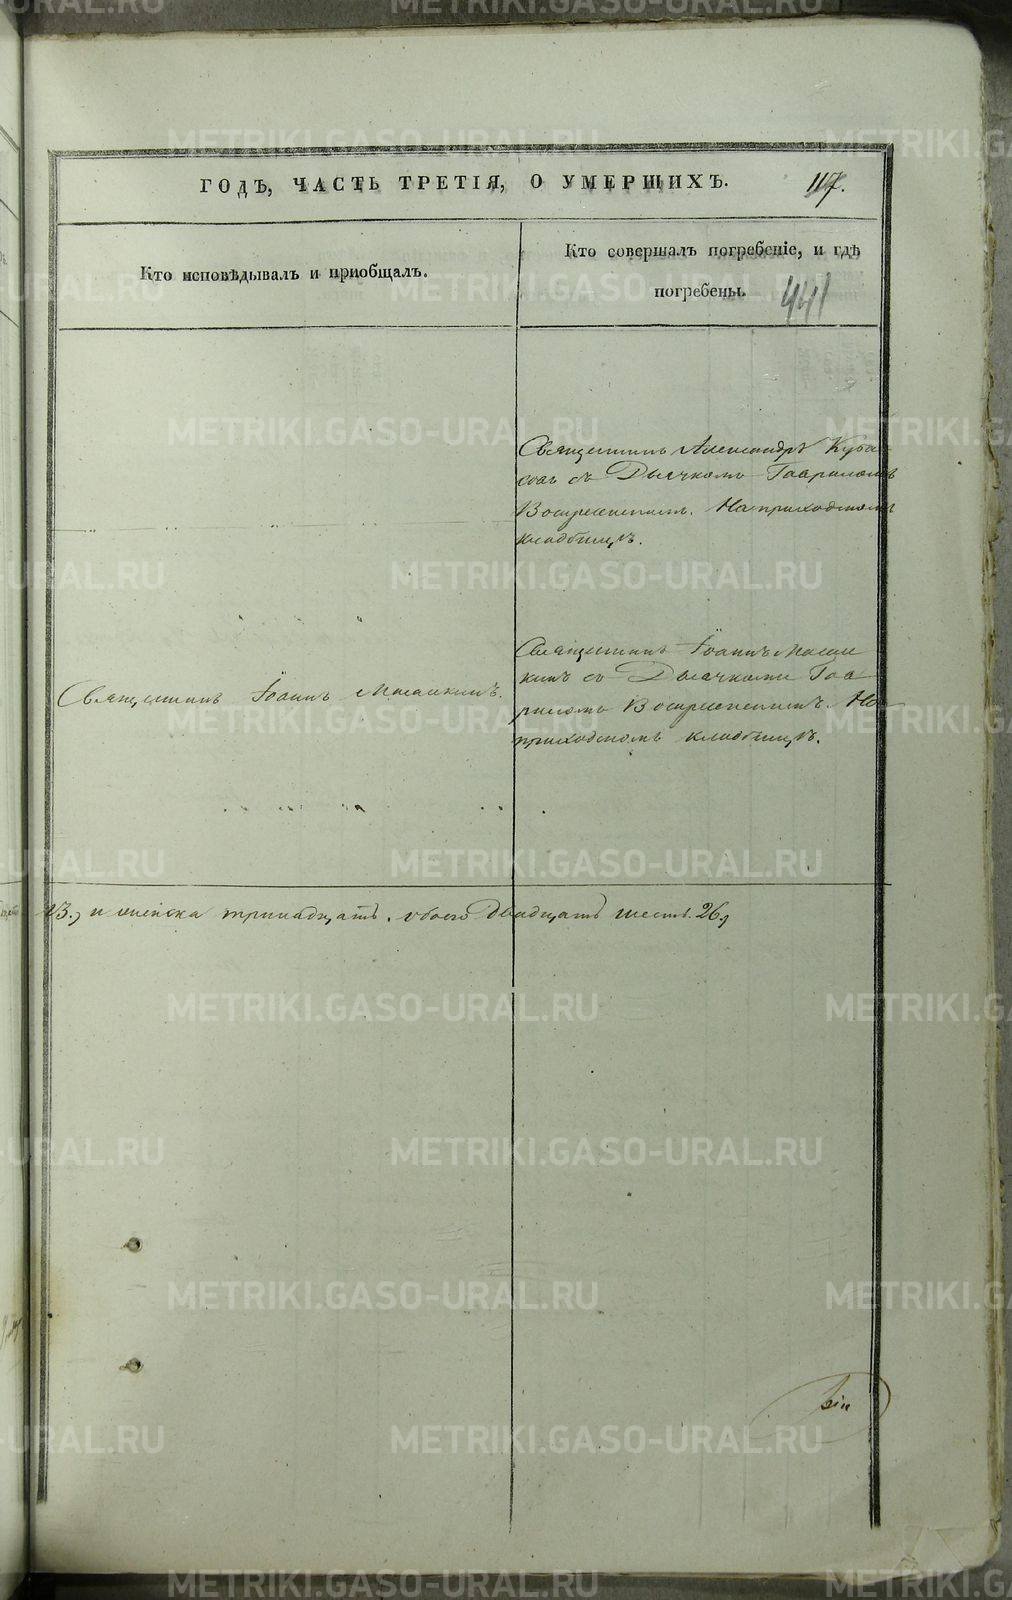 ГОДЪ, ЧАСТЬ ТРЕТІЯ, О УМЕРШИХЪ. 117.
Кто исповѣдывалъ и пріобщалъ.
Кто совершалъ погребеніе, и гдѣ
погребены. 441
Священникъ Александръ Куба
совъ съ Дьячкомъ Гавриломъ
Воскресенскимъ. На приходскомъ
кладбищѣ.
Священникъ Іоаннъ
Священникъ Іоаннъ
кинъ съ Дьячкомъ Гав
риломъ Воскресенскимъ. На
приходскомъ кладбищѣ.
13., и женска тринадцать. обоего Двадцать шесть. 26.,
METRIKI.GASO-URAL.RU